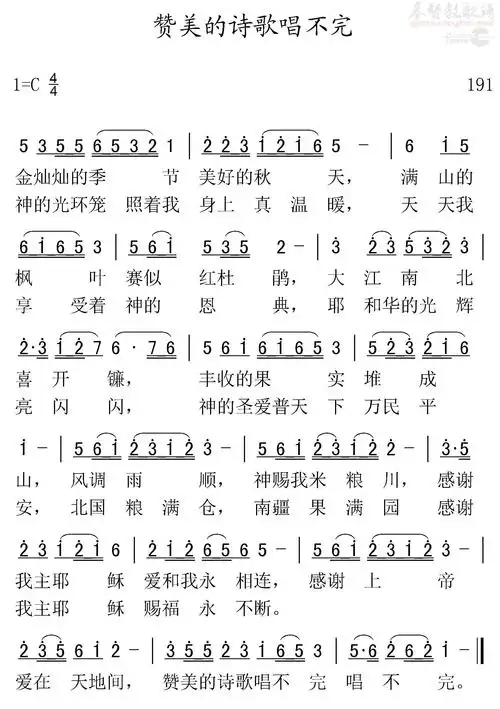 赞美的诗歌唱不完
1=C 4/4 191
5 3 5 5 6 5 3 2 1 | 2 2 3 1 2 1 6 5 - | 6 1 5
金灿灿的季 节 美好的秋 天, 满 山的
神的光环笼 照着我 身上 真 温 暖, 天 天我
6 1 6 5 3 | 5 6 1 5 3 5 2 - | 3 2 3 5 3 2 3
枫 叶 赛似 红杜 鹃, 大 江 南 北
享 受着 神的 恩 典, 耶 和华的光 辉
2·3 1 2 7 6 · 7 6 | 5 6 1 6 1 6 5 3 | 5 2 3 2 1 6
喜 开 镰, 丰收的果 实 堆 成
亮 闪 闪, 神的圣爱普天 下 万民 平
1 - | 5 6 1 2 3 1 2 | 5 6 1 3 2 2 - | 3·5
山, 风调 雨 顺, 神赐我米 粮 川, 感谢
安, 北国 粮 满 仓, 南疆 果 满 园 感谢
2 3 1 2 1 6 | 2 1 2 6 5 6 - | 5 6 1 2 3 1 2 3 - |
我主耶 稣 爱和我永 相连, 感谢 上 帝
我主耶 稣 赐福 永 不断。
2 3 5 6 1 2 - | 3 5 5 2 1 6 5 3 | 5·6 2 6 2 1 - ‖
爱在 天地间, 赞美的诗歌唱不 完 唱 不 完。